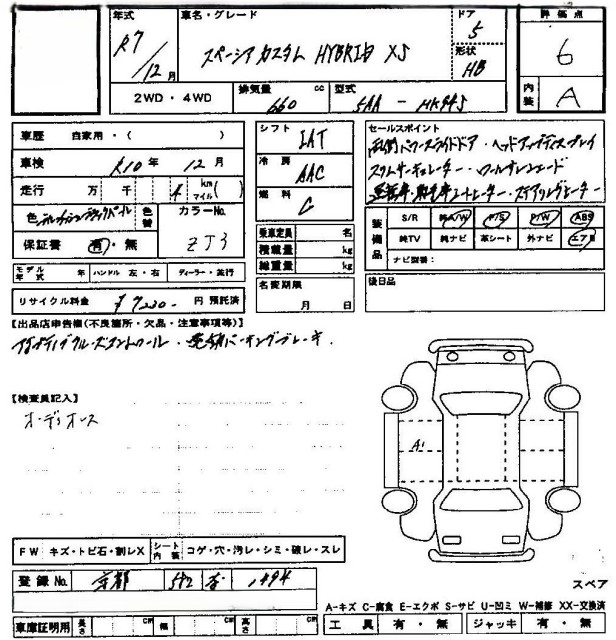 年式 車名・グレード ドア 評価点
R7/12月 スペーシア カスタム HYBRID XS 5 6
形状 HB
2WD・4WD 排気量 660 cc 型式 5AA-MK94S 内装 A
車歴 自家用・( )
車検 R10年 12月
走行 万 千 4 km マイル( )
色 色替 カラーNo. ZJ3
保証書 有・無
モデル年式 年 ハンドル 左・右 ディーラー・並行
リサイクル料金 ¥7230- 円 預託済
シフト IAT
冷房 AAC
燃料 G
乗車定員 名
積載量 kg
総重量 kg
名変期限
月 日
セールスポイント
両側パワースライドドア・ヘッドアップディスプレイ
スリムサーキュレーター・ロールサンシェード
運転席・助手席シートヒーター・ステアリングヒーター
装備品 S/R 純A/W P/S P/W ABS
純TV 純ナビ 革シート 外ナビ エアB
ナビ型番:
後日品
【出品店申告欄(不良箇所・欠品・注意事項等)】
アダプティブクルーズコントロール・電動パーキングブレーキ
【検査員記入】
オーディオレス
A1
FW キズ・トビ石・割レX シート内装 コゲ・穴・汚レ・シミ・破レ・スレ
登録No. 京都 582 1494
スペア
A-キズ C-腐食 E-エクボ S-サビ U-凹ミ W-補修 XX-交換済
車庫証明用 長さ cm 幅 cm 高さ cm 工具 有・無 ジャッキ 有・無